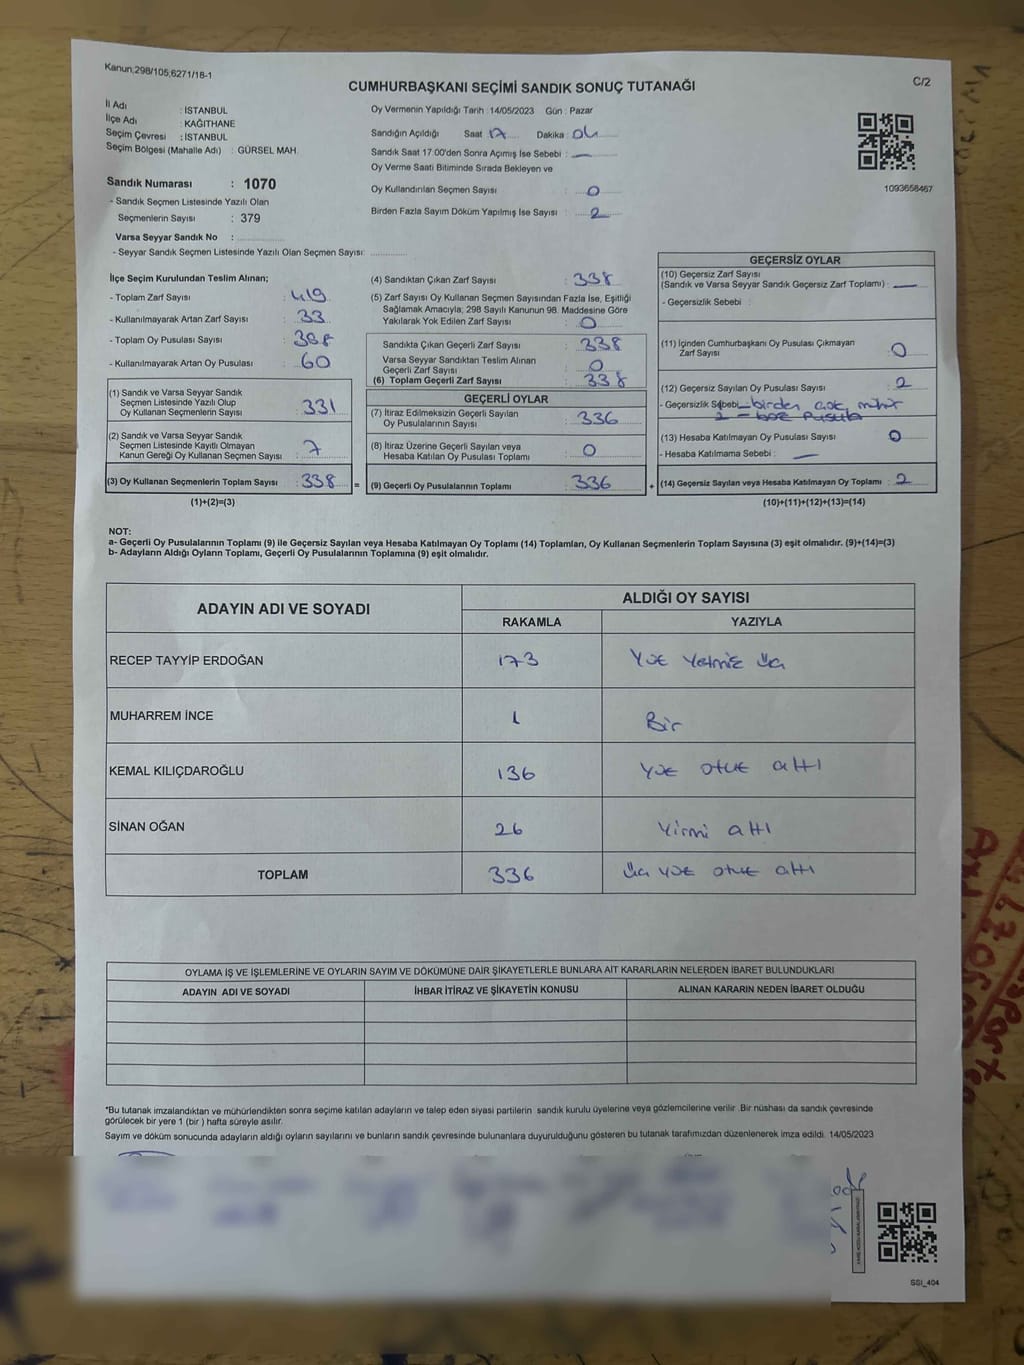 Kanun;298/105;6271/18-1
CUMHURBAŞKANI SEÇİMİ SANDIK SONUÇ TUTANAĞI
C/2
İl Adı : İSTANBUL
İlçe Adı : KAĞITHANE
Seçim Çevresi : İSTANBUL
Seçim Bölgesi (Mahalle Adı) : GÜRSEL MAH.
Oy Vermenin Yapıldığı Tarih :14/05/2023 Gün : Pazar
Sandığın Açıldığı Saat : 17 Dakika : 04
Sandık Saat 17.00'den Sonra Açımış İse Sebebi :
Oy Verme Saati Bitiminde Sırada Bekleyen ve
Oy Kullandırılan Seçmen Sayısı : 0
Birden Fazla Sayım Döküm Yapılmış İse Sayısı : 2
1093658467
Sandık Numarası : 1070
- Sandık Seçmen Listesinde Yazılı Olan
Seçmenlerin Sayısı : 379
Varsa Seyyar Sandık No :
- Seyyar Sandık Seçmen Listesinde Yazılı Olan Seçmen Sayısı:
İlçe Seçim Kurulundan Teslim Alınan;
- Toplam Zarf Sayısı : 419
- Kullanılmayarak Artan Zarf Sayısı : 33
- Toplam Oy Pusulası Sayısı :
- Kullanılmayarak Artan Oy Pusulası : 60
(1) Sandık ve Varsa Seyyar Sandık
Seçmen Listesinde Yazılı Olup
Oy Kullanan Seçmenlerin Sayısı : 331
(2) Sandık ve Varsa Seyyar Sandık
Seçmen Listesinde Kayıtlı Olmayan
Kanun Gereği Oy Kullanan Seçmen Sayısı : 7
(3) Oy Kullanan Seçmenlerin Toplam Sayısı : 338 =
(1)+(2)=(3)
(4) Sandıktan Çıkan Zarf Sayısı : 338
(5) Zarf Sayısı Oy Kullanan Seçmen Sayısından Fazla İse, Eşitliği
Sağlamak Amacıyla; 298 Sayılı Kanunun 98. Maddesine Göre
Yakılarak Yok Edilen Zarf Sayısı : 0
Sandıkta Çıkan Geçerli Zarf Sayısı : 338
Varsa Seyyar Sandıktan Teslim Alınan
Geçerli Zarf Sayısı : 0
(6) Toplam Geçerli Zarf Sayısı : 338
GEÇERLİ OYLAR
(7) İtiraz Edilmeksizin Geçerli Sayılan
Oy Pusulalarının Sayısı : 336
(8) İtiraz Üzerine Geçerli Sayılan veya
Hesaba Katılan Oy Pusulası Toplamı : 0
(9) Geçerli Oy Pusulalarının Toplamı : 336 +
GEÇERSİZ OYLAR
(10) Geçersiz Zarf Sayısı
(Sandık ve Varsa Seyyar Sandık Geçersiz Zarf Toplamı) :
- Geçersizlik Sebebi :
(11) İçinden Cumhurbaşkanı Oy Pusulası Çıkmayan
Zarf Sayısı : 0
(12) Geçersiz Sayılan Oy Pusulası Sayısı : 2
- Geçersizlik Sebebi birden çok mühür
2 - boz pusula
(13) Hesaba Katılmayan Oy Pusulası Sayısı : 0
- Hesaba Katılmama Sebebi :
(14) Geçersiz Sayılan veya Hesaba Katılmayan Oy Toplamı : 2
(10)+(11)+(12)+(13)=(14)
NOT:
a- Geçerli Oy Pusulalarının Toplamı (9) ile Geçersiz Sayılan veya Hesaba Katılmayan Oy Toplamı (14) Toplamları, Oy Kullanan Seçmenlerin Toplam Sayısına (3) eşit olmalıdır. (9)+(14)=(3)
b- Adayların Aldığı Oyların Toplamı, Geçerli Oy Pusulalarının Toplamına (9) eşit olmalıdır.
ADAYIN ADI VE SOYADI
ALDIĞI OY SAYISI
RAKAMLA YAZIYLA
RECEP TAYYİP ERDOĞAN 173 Yüz Yetmiş üç
MUHARREM İNCE 1 Bir
KEMAL KILIÇDAROĞLU 136 Yüz otuz altı
SİNAN OĞAN 26 Yirmi altı
TOPLAM 336 üç yüz otuz altı
OYLAMA İŞ VE İŞLEMLERİNE VE OYLARIN SAYIM VE DÖKÜMÜNE DAİR ŞİKAYETLERLE BUNLARA AİT KARARLARIN NELERDEN İBARET BULUNDUKLARI
ADAYIN ADI VE SOYADI İHBAR İTİRAZ VE ŞİKAYETİN KONUSU ALINAN KARARIN NEDEN İBARET OLDUĞU
*Bu tutanak imzalandıktan ve mühürlendikten sonra seçime katılan adayların ve talep eden siyasi partilerin sandık kurulu üyelerine veya gözlemcilerine verilir .Bir nüshası da sandık çevresinde
görülecek bir yere 1 (bir ) hafta süreyle asılır.
Sayım ve döküm sonucunda adayların aldığı oyların sayılarını ve bunların sandık çevresinde bulunanlara duyurulduğunu gösteren bu tutanak tarafımızdan düzenlenerek imza edildi. 14/05/2023
SSİ_404